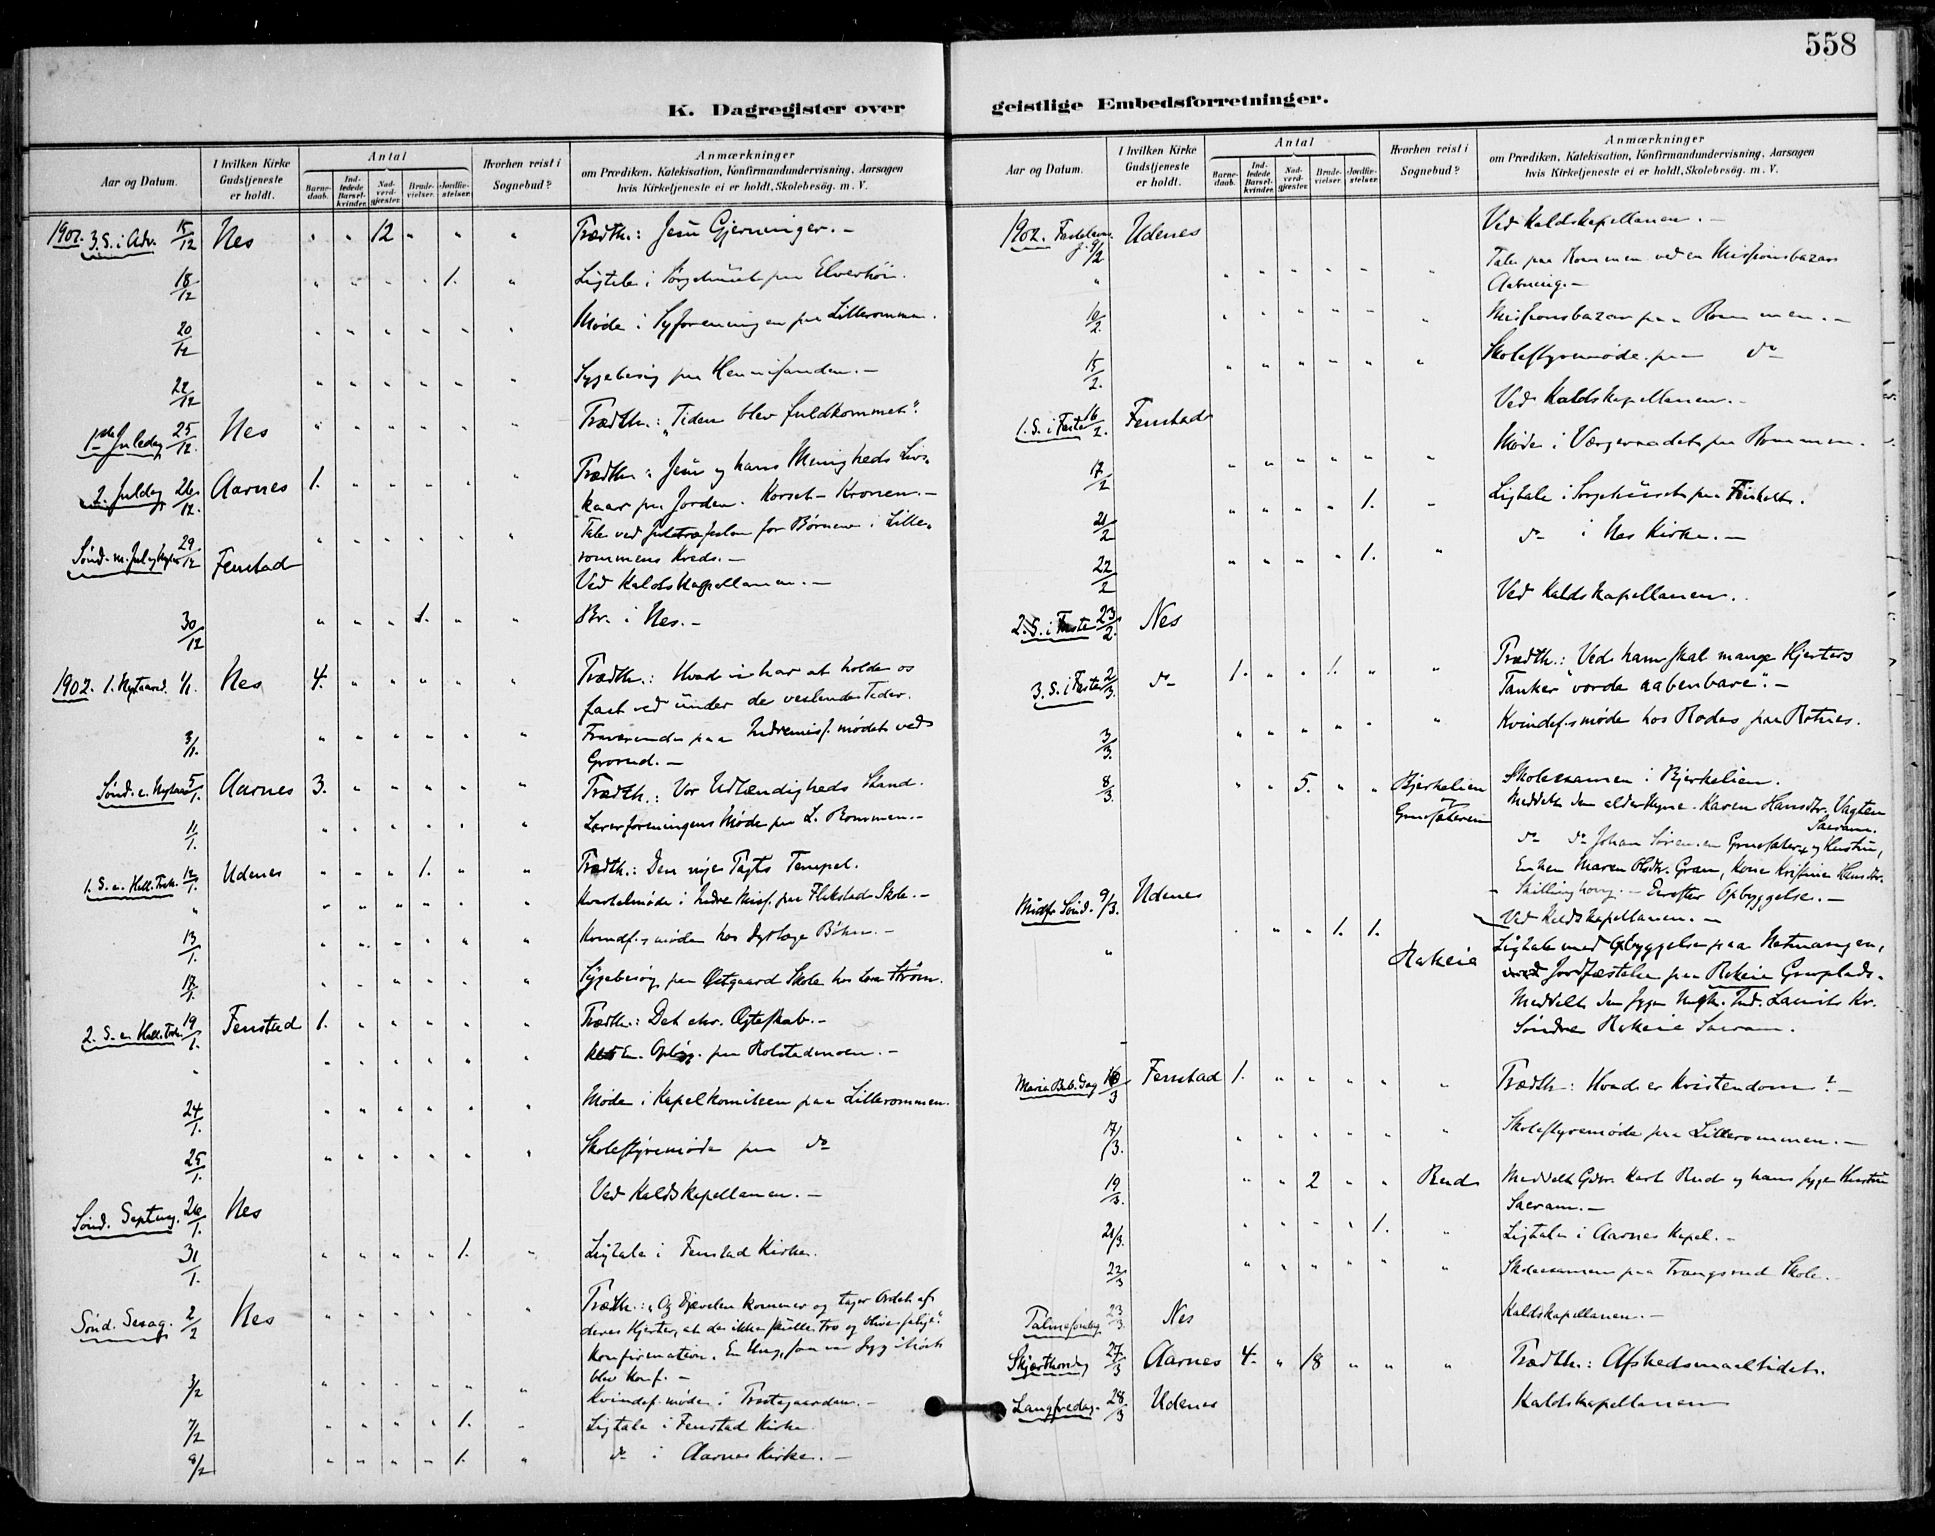 558
K. Dagregister over
Aar og Datum.
I hvilken Kirke Gudstjeneste er holdt.
Antal
Barnedaab.
Indledede Barselkvinder.
Nadverdgjæster.
Brudevielser.
Jordfæstelser.
Hvorhen reist i Sognebud?
Anmærkninger
om Prædiken, Katekisation, Konfirmandundervisning, Aarsagen
hvis Kirketjeneste ei er holdt, Skolebesög. m. V.
3. S. i Adv. 15/12 Nes " " 12 " " " Trædth.: Jesu Gjerninger. -
18/12 " " " " 1. " Ligtale i Sørgehuset paa Elverhöi.
20/12 " " " " " " Møde i Syforeningen paa Lillerommen.
22/12 " " " " " " Sygebesøg paa
1ste Juledag 25/12 Nes " " " " " " Trædth.: "Tiden blev fuldkommet".
2. Juledag 26/12 Aarnes 1. " " " " " Trædth.: Jesu og hans Menigheds Livs-
kaar paa Jorden. Korset - Kronen. -
29/12 Fenstad " " " " " " Tale ved Juletræfesten for Börnene i Lille-
rommens Kreds. -
Ved Kaldskapellanen. -
30/12 " " " 1. " " Br. i Nes. -
1902. 1. Nytaarsd. 1/1 Nes 4. " " " " " Trædth.: Hvad vi har at holde os
fast ved under de vexlende Tider.
3/1 " " " " " " paa Indremisf. mødet ved
Grorud. -
Sønd. e. Nytaar 5/1. Aarnes 3. " " " " " Trædth.: Vor Udlændigheds Stand.
11/1. " " " " " " Lærerforeningens Møde paa L. Rommen. -
1. S. e. Hell. Trek. 12/1. Udenes " " " 1. " " Trædth.: Den nye Pagts Tempel.
" " " " " " " Kvartalmøde i Indre Misf. paa Flikstad Skole. -
13/1. " " " " " " Kvindef.smøde hos Dyrlæge Böhm. -
17/1. " " " " " " Sygebesøg paa Östgaard Skole hos Lærer Ström.
2. S. e. Hell. Trek. 19/1. Fenstad 1. " " " " " Trædth.: Det chr. Ægteskab. -
" " " " " " " Opbygg. paa Rolstadmoen. -
24/1. " " " " " " Møde i Kapelkomiteen paa Lillerommen.
25/1. " " " " " " Skolestyremøde paa do
Sønd. Septuag. 26/1. Nes Ved Kaldskapellanen. -
31/1. " " " " 1. " Ligtale i Fenstad Kirke.
Sönd. Sexag. 2/2 Nes " " " " " " Trædth.: "Og Djævelen kommer og tager Ordet af
deres Hjerter, at de ikke skulle tro og blive salige".
Konfirmation. En Ung, som var syg i Höst
blev Konf. -
3/2 " " " " " " Kvindef. møde i Prestegaarden. -
7/2 " " " " 1. " Ligtale i Fenstad Kirke.
8/2 " " " " 1. " do i Aarnes Kirke. -
geistlige Embedsforretninger.
Aar og Datum.
I hvilken Kirke Gudstjeneste er holdt.
Antal
Barnedaab.
Indledede Barselkvinder.
Nadverdgjæster.
Brudevielser.
Jordfæstelser.
Hvorhen reist i Sognebud?
Anmærkninger
om Prædiken, Katekisation, Konfirmandundervisning, Aarsagen
hvis Kirketjeneste ei er holdt, Skolebesög. m. V.
1902. Fastelavns 9/2 Udenes Ved Kaldskapellanen. -
" " " " " " " Tale paa Rommen ved en Missionsbazars
Aabning. -
10/2. " " " " " " Missionsbazar paa Rommen. -
15/2. " " " " " " Skolestyremøde paa do
1. S. i Faste 16/2. Fenstad Ved Kaldskapellanen. -
17/2 " " " " " " Møde i Værgeraadet paa Rommen.
21/2 " " " " 1. " Ligtale i Sørgehuset paa
22/2 " " " " 1. " do i Nes Kirke. -
2. S. i Faste 23/2. Nes Ved Kaldskapellanen.
3. S. i Faste 2/3. do 1. " " 1. " " Trædth.: Ved ham skal mange Hjerters
Tanker "vorde aabenbare". -
3/3. " " " " " " Kvindef.smøde hos Rodes paa Rotnes.
8/3. " " 5. " " Bjerkelien Skoleexamen i Bjerkelien.
Meddelt den alderstegne Karen Hansdtr. Vagten
Sacram.
do do Johan Sørensen og Hustru,
Enken Maren Olsdtr. Gran, Kone Kristine Hansdtr.
- Derefter Opbyggelse. -
Midtf. Sönd. 9/3. Udenes Ved Kaldskapellanen. -
" " " 1. 1. Rakeie Ligtale med Opbyggelse paa
Jordfæstelse paa Rakeie Gravplads.
Meddelt den syge Laurits Kr.
Søndre Rakeie Sacram.
Maria Beb. Dag 16/3 Fenstad 1. " " " " " Trædth.: Hvad er Kristendom? -
17/3. " " " " " " Skolestyremøde paa Lillerommen. -
19/3. " " 2 " " Rud Meddelt Gdbr. Karl Rud og hans syge Hustru
Sacram. -
21/3. " " " " 1. " Ligtale i Aarnes Kapel. -
22/3 " " " " " " Skoleexamen paa Trangsrud Skole. -
Palmesöndag 23/3. Nes Kaldskapellanen. -
Skjærthorsdag 27/3 Aarnes 4. " 18 " " " Trædth.: Afskedsmaaltidet.
Langfredag. 28/3 Udenes Kaldskapellanen